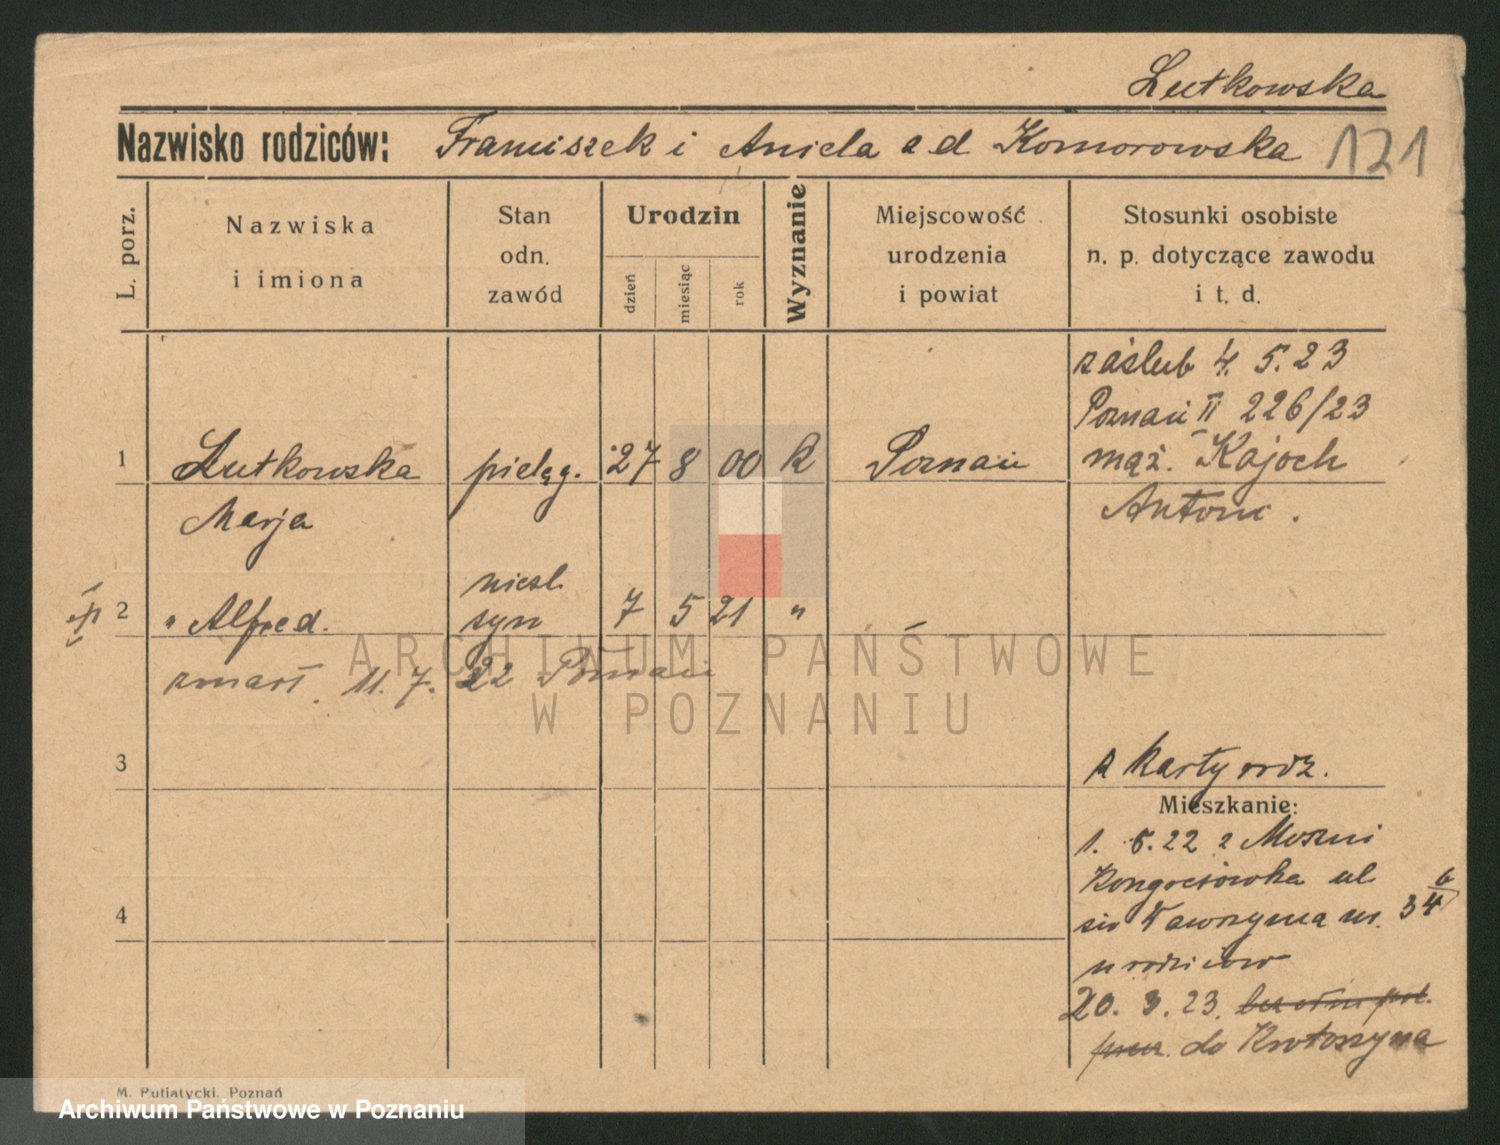 Lutkowska
Nazwisko rodziców: Franciszek i Aniela z d Komorowska 121
L. porz.
Nazwiska i imiona
Stan odn. zawód
Urodzin
dzień
miesiąc
rok
Wyznanie
Miejscowość urodzenia i powiat
Stosunki osobiste n. p. dotyczące zawodu i t. d.
zaślub 4. 5. 23
Poznań II 226/23
1 Lutkowska pielęg. 27 8 00 k Poznań mąż. Kajoch
Marja Antoni.
nieśl.
2 " Alfred. syn 7 5 21 "
zmarł 11. 7. 22 Poznań
ARCHIWUM PAŃSTWOWE
W POZNANIU
3 z karty rodz.
Mieszkanie:
1. 5. 22 z
Kongresówka ul
św Wawrzyńca nr. 34
u rodziców
20. 3. 23.
do Krotoszyna
4
M. Putiatycki, Poznań
Archiwum Państwowe w Poznaniu